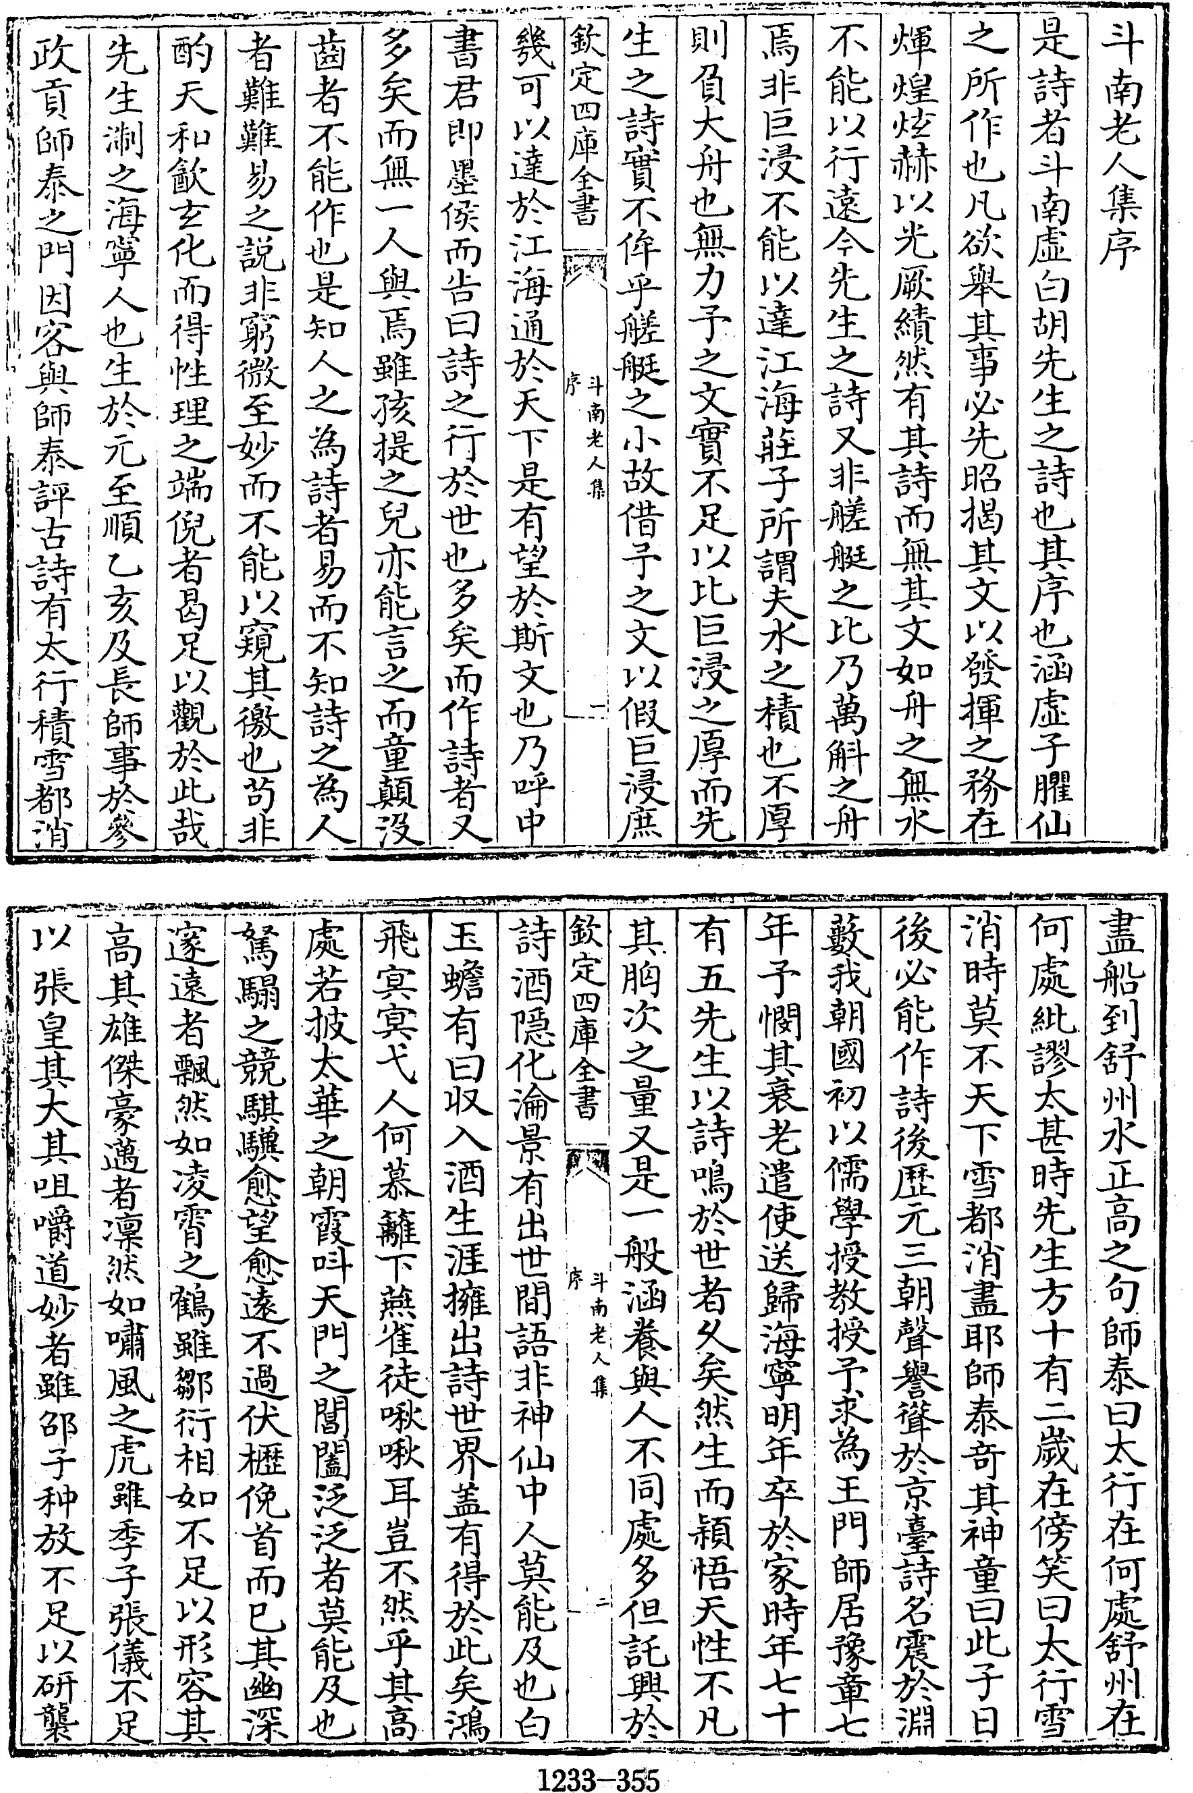 斗南老人集序
是詩者斗南虛白胡先生之詩也其序也涵虛子臞仙
之所作也凡欲舉其事必先昭揭其文以發揮之務在
煇煌炫赫以光厥績然有其詩而無其文如舟之無水
不能以行遠今先生之詩又非艖艇之比乃萬斛之舟
焉非巨浸不能以達江海莊子所謂夫水之積也不厚
則負大舟也無力予之文實不足以比巨浸之厚而先
生之詩實不侔乎艖艇之小故借予之文以假巨浸庶
欽定四庫全書
斗南老人集
序
一
幾可以達於江海通於天下是有望於斯文也乃呼中
書君即墨侯而告曰詩之行於世也多矣而作詩者又
多矣而無一人與焉雖孩提之兒亦能言之而童顛沒
齒者不能作也是知人之為詩者易而不知詩之為人
者難難易之說非窮微至妙而不能以窺其徼也茍非
酌天和飲玄化而得性理之端倪者曷足以觀於此哉
先生淛之海寧人也生於元至順乙亥及長師事於參
政貢師泰之門因客與師泰評古詩有太行積雪都消
盡船到舒州水正高之句師泰曰太行在何處舒州在
何處紕謬太甚時先生方十有二歲在傍笑曰太行雪
消時莫不天下雪都消盡耶師泰竒其神童曰此子日
後必能作詩後歷元三朝聲譽聳於京臺詩名震於淵
藪我朝國初以儒學授教授予求為王門師居豫章七
年予憫其衰老遣使送歸海寧明年卒於家時年七十
有五先生以詩鳴於世者久矣然生而穎悟天性不凡
其胸次之量又是一般涵養與人不同處多但託興於
欽定四庫全書
斗南老人集
序
二
詩酒隱化淪景有出世間語非神仙中人莫能及也白
玉蟾有曰收入酒生涯擁出詩世界蓋有得於此矣鴻
飛冥冥弋人何慕籬下燕雀徒啾啾耳豈不然乎其高
處若披太華之朝霞叫天門之閶闔泛泛者莫能及也
駑騧之競騏驥愈望愈遠不過伏櫪俛首而已其幽深
邃遠者飄然如凌霄之鶴雖鄒衍相如不足以形容其
高其雄傑豪邁者凛然如嘯風之虎雖季子張儀不足
以張皇其大其咀嚼道妙者雖邵子种放不足以研襲
1233-355